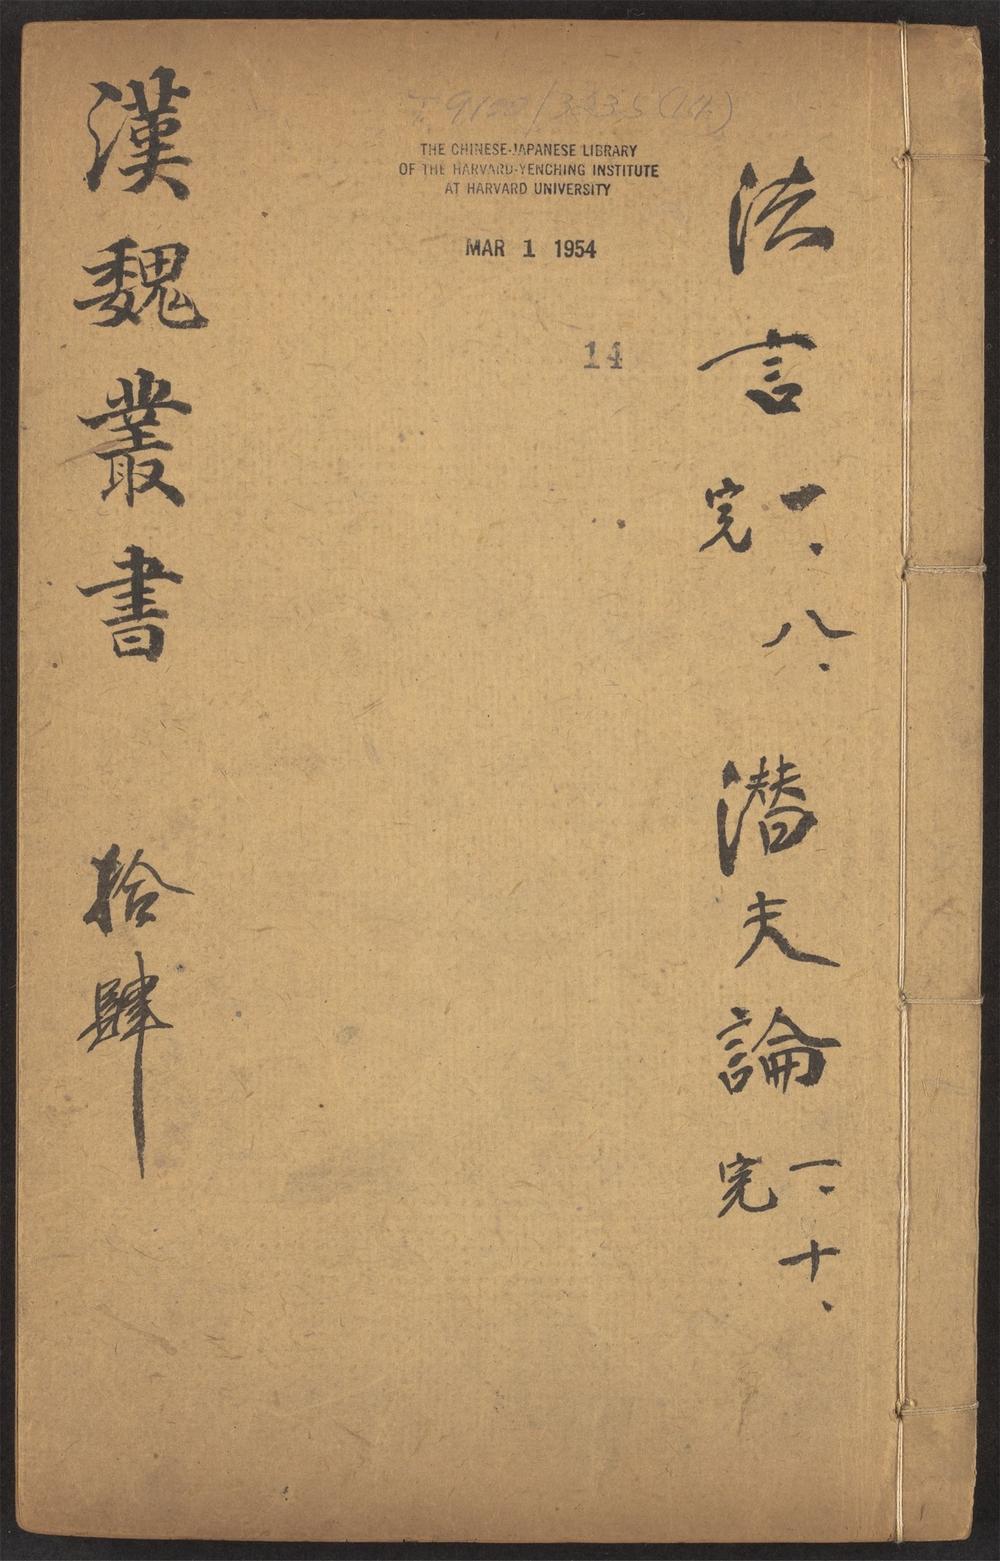 T 9100/3235 (14)
THE CHINESE-JAPANESE LIBRARY
OF THE HARVARD-YENCHING INSTITUTE
AT HARVARD UNIVERSITY
MAR 1 1954
14
法言
一、八、
完
潛夫論
一、十、
完
漢魏叢書 拾肆